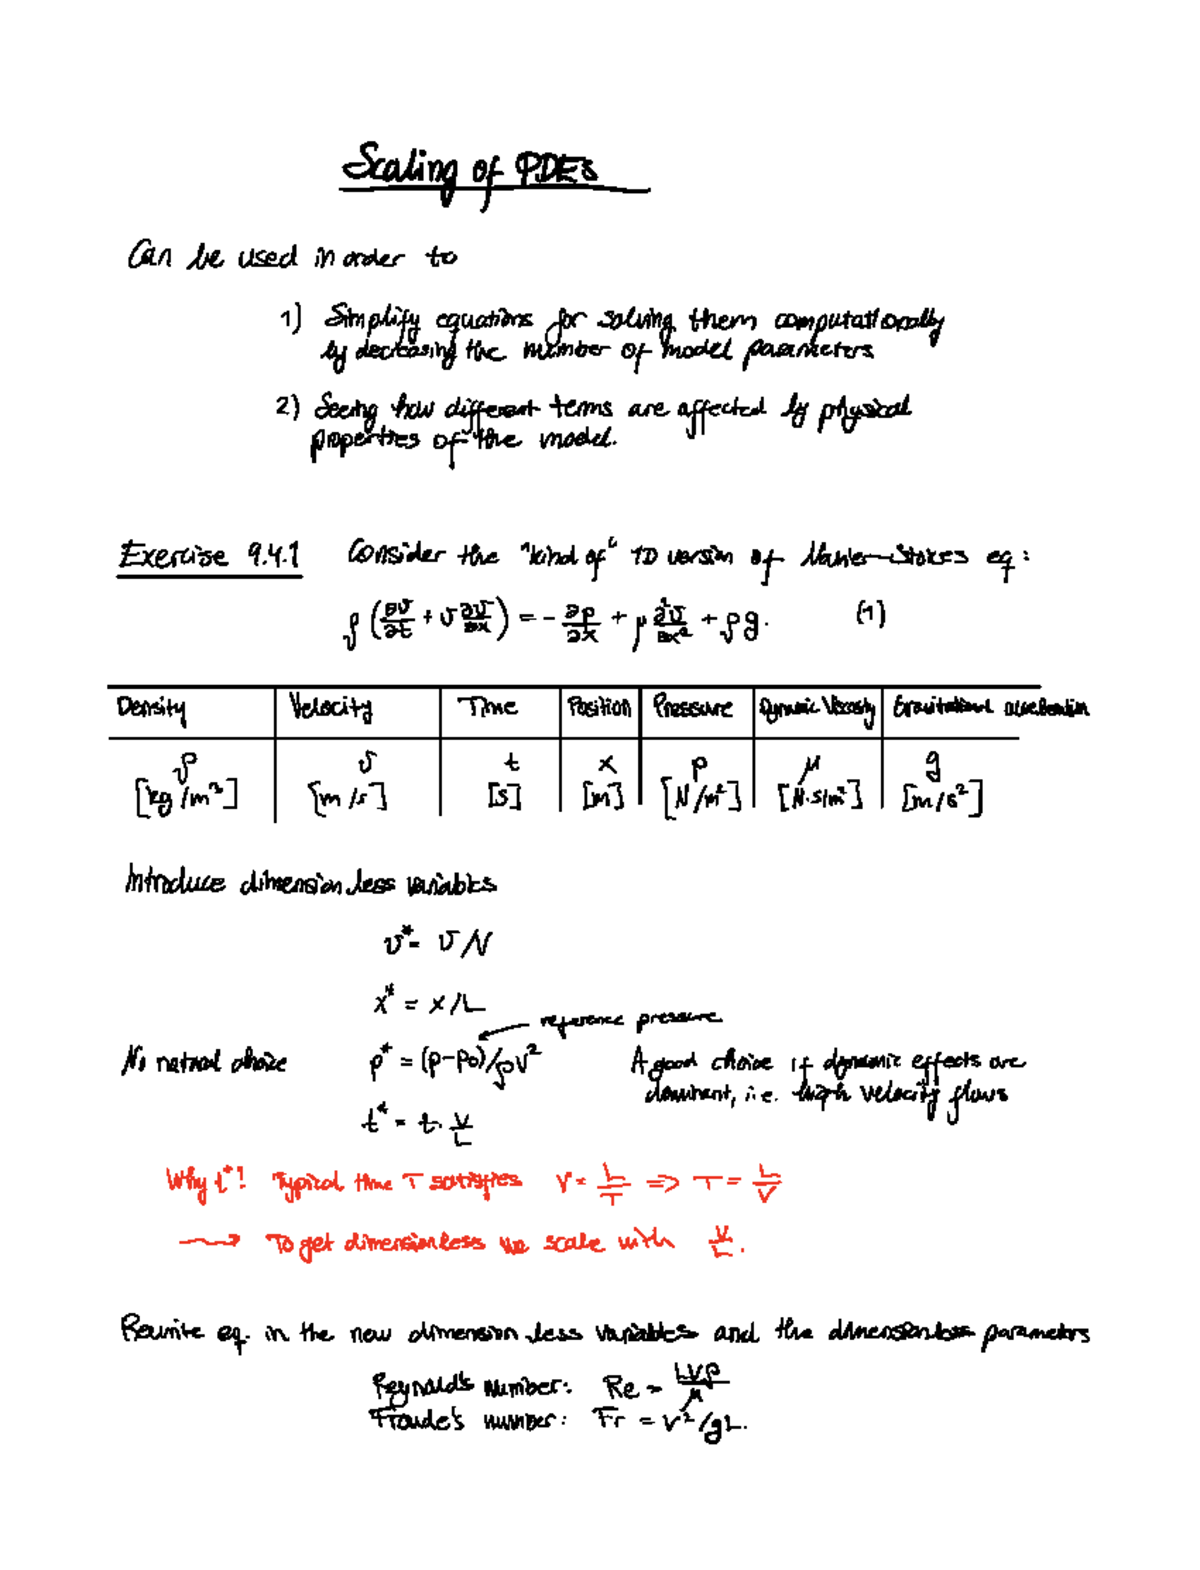 Scaling of PDEs
Can be used in order to
1) Simplify equations for solving them computationally
by decreasing the number of model parameters
2) Seeing how different terms are affected by physical
properties of the model.
Exercise 9.4.1 Consider the "kind of" 1D version of Navier-Stokes eq:
ρ(∂v/∂t + v ∂v/∂x) = - ∂p/∂x + μ ∂²v/∂x² + ρg. (1)
Density Velocity Time Position Pressure Dynamic Viscosity Gravitational acceleration
ρ v t x p μ g
[kg/m³] [m/s] [s] [m] [N/m²] [N·s/m²] [m/s²]
Introduce dimensionless variables
v* = v/V
x* = x/L
reference pressure
No natural choice p* = (p-p0)/ρV² A good choice if dynamic effects are
dominant, i.e. high velocity flows
t* = t · V/L
Why t*! Typical time T satisfies V = L/T => T = L/V
⟶ To get dimensionless we scale with V/L.
Rewrite eq. in the new dimensionless variables and the dimensionless parameters
Reynold's number: Re = LVρ/μ
Froude's number: Fr = V²/gL.